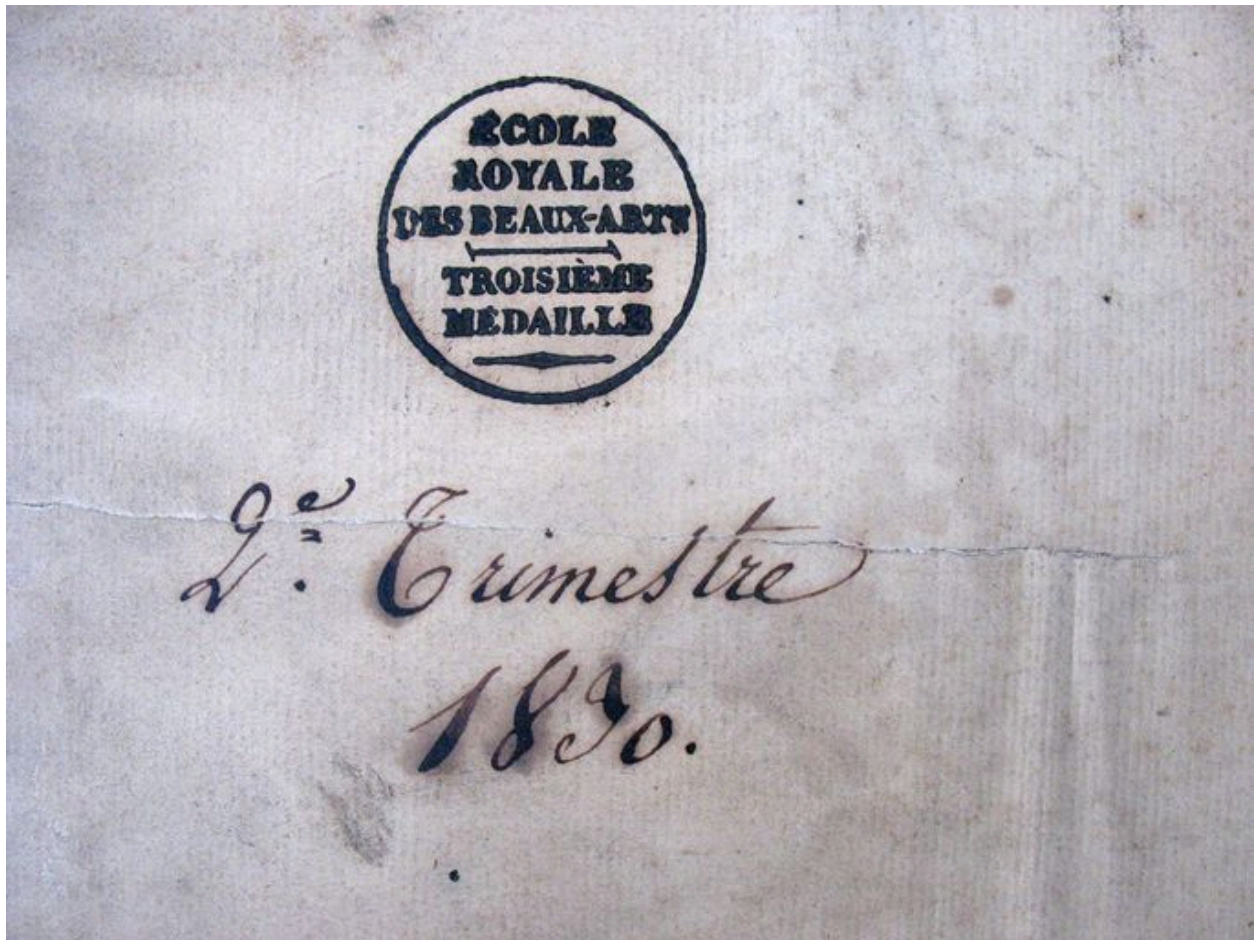 ÉCOLE
ROYALE
DES BEAUX-ARTS
TROISIÈME
MÉDAILLE
2.e Trimestre
1830.